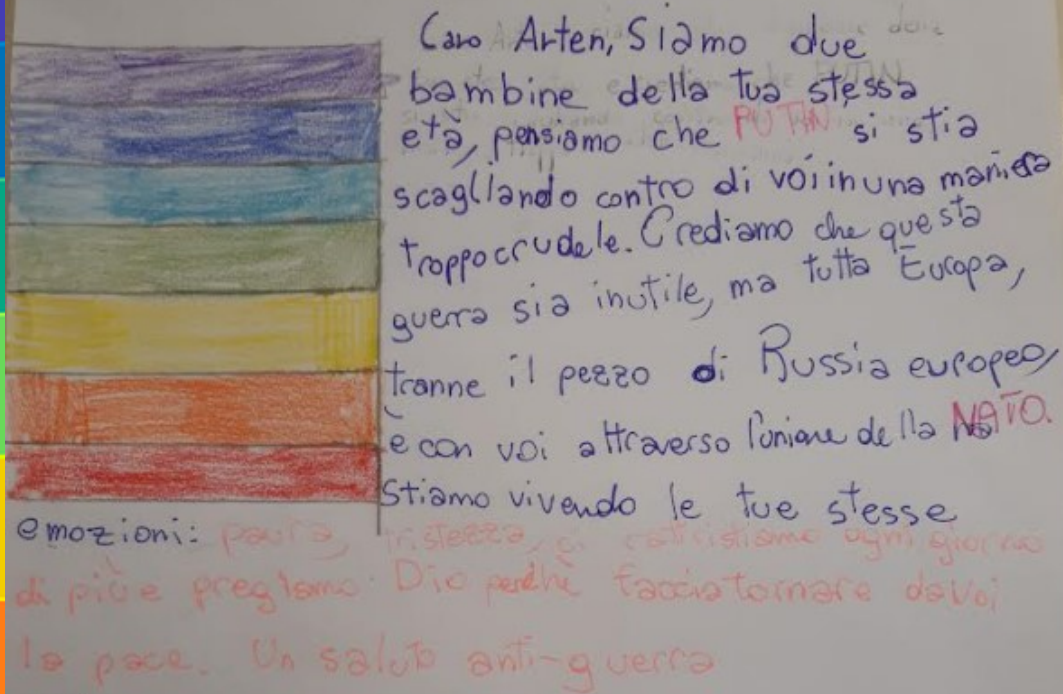 Caro Arten, Siamo due
bambine della tua stessa
età, pensiamo che PUTIN si stia
scagliando contro di voi in una maniera
troppo crudele. Crediamo che questa
guerra sia inutile, ma tutta Europa,
tranne il pezzo di Russia europeo,
è con voi attraverso l'unione della NATO.
Stiamo vivendo le tue stesse
emozioni: paura, tristezza, ci rattristiamo ogni giorno
di più e preghiamo Dio perché faccia tornare da voi
la pace. Un saluto anti-guerra